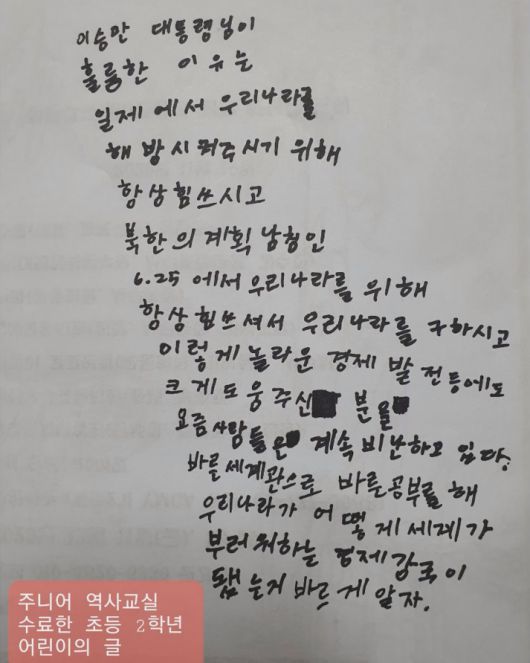 이승만 대통령님이
훌륭한 이유는
일제에서 우리나라를
해방시켜주시기 위해
항상힘쓰시고
북한의 계획 남침인
6.25 에서 우리나라를 위해
항상힘쓰셔서 우리나라를 구하시고
이렇게 놀라운 경제 발전등에도
크게도움주신 분을
요즘사람들은 계속 비난하고 있다.
바른세계관으로 바른공부를 해
우리나라가 어떻게 세계가
부러워하는 경제강국이
됐는지 바르게 알자.
주니어 역사교실
수료한 초등 2학년
어린이의 글